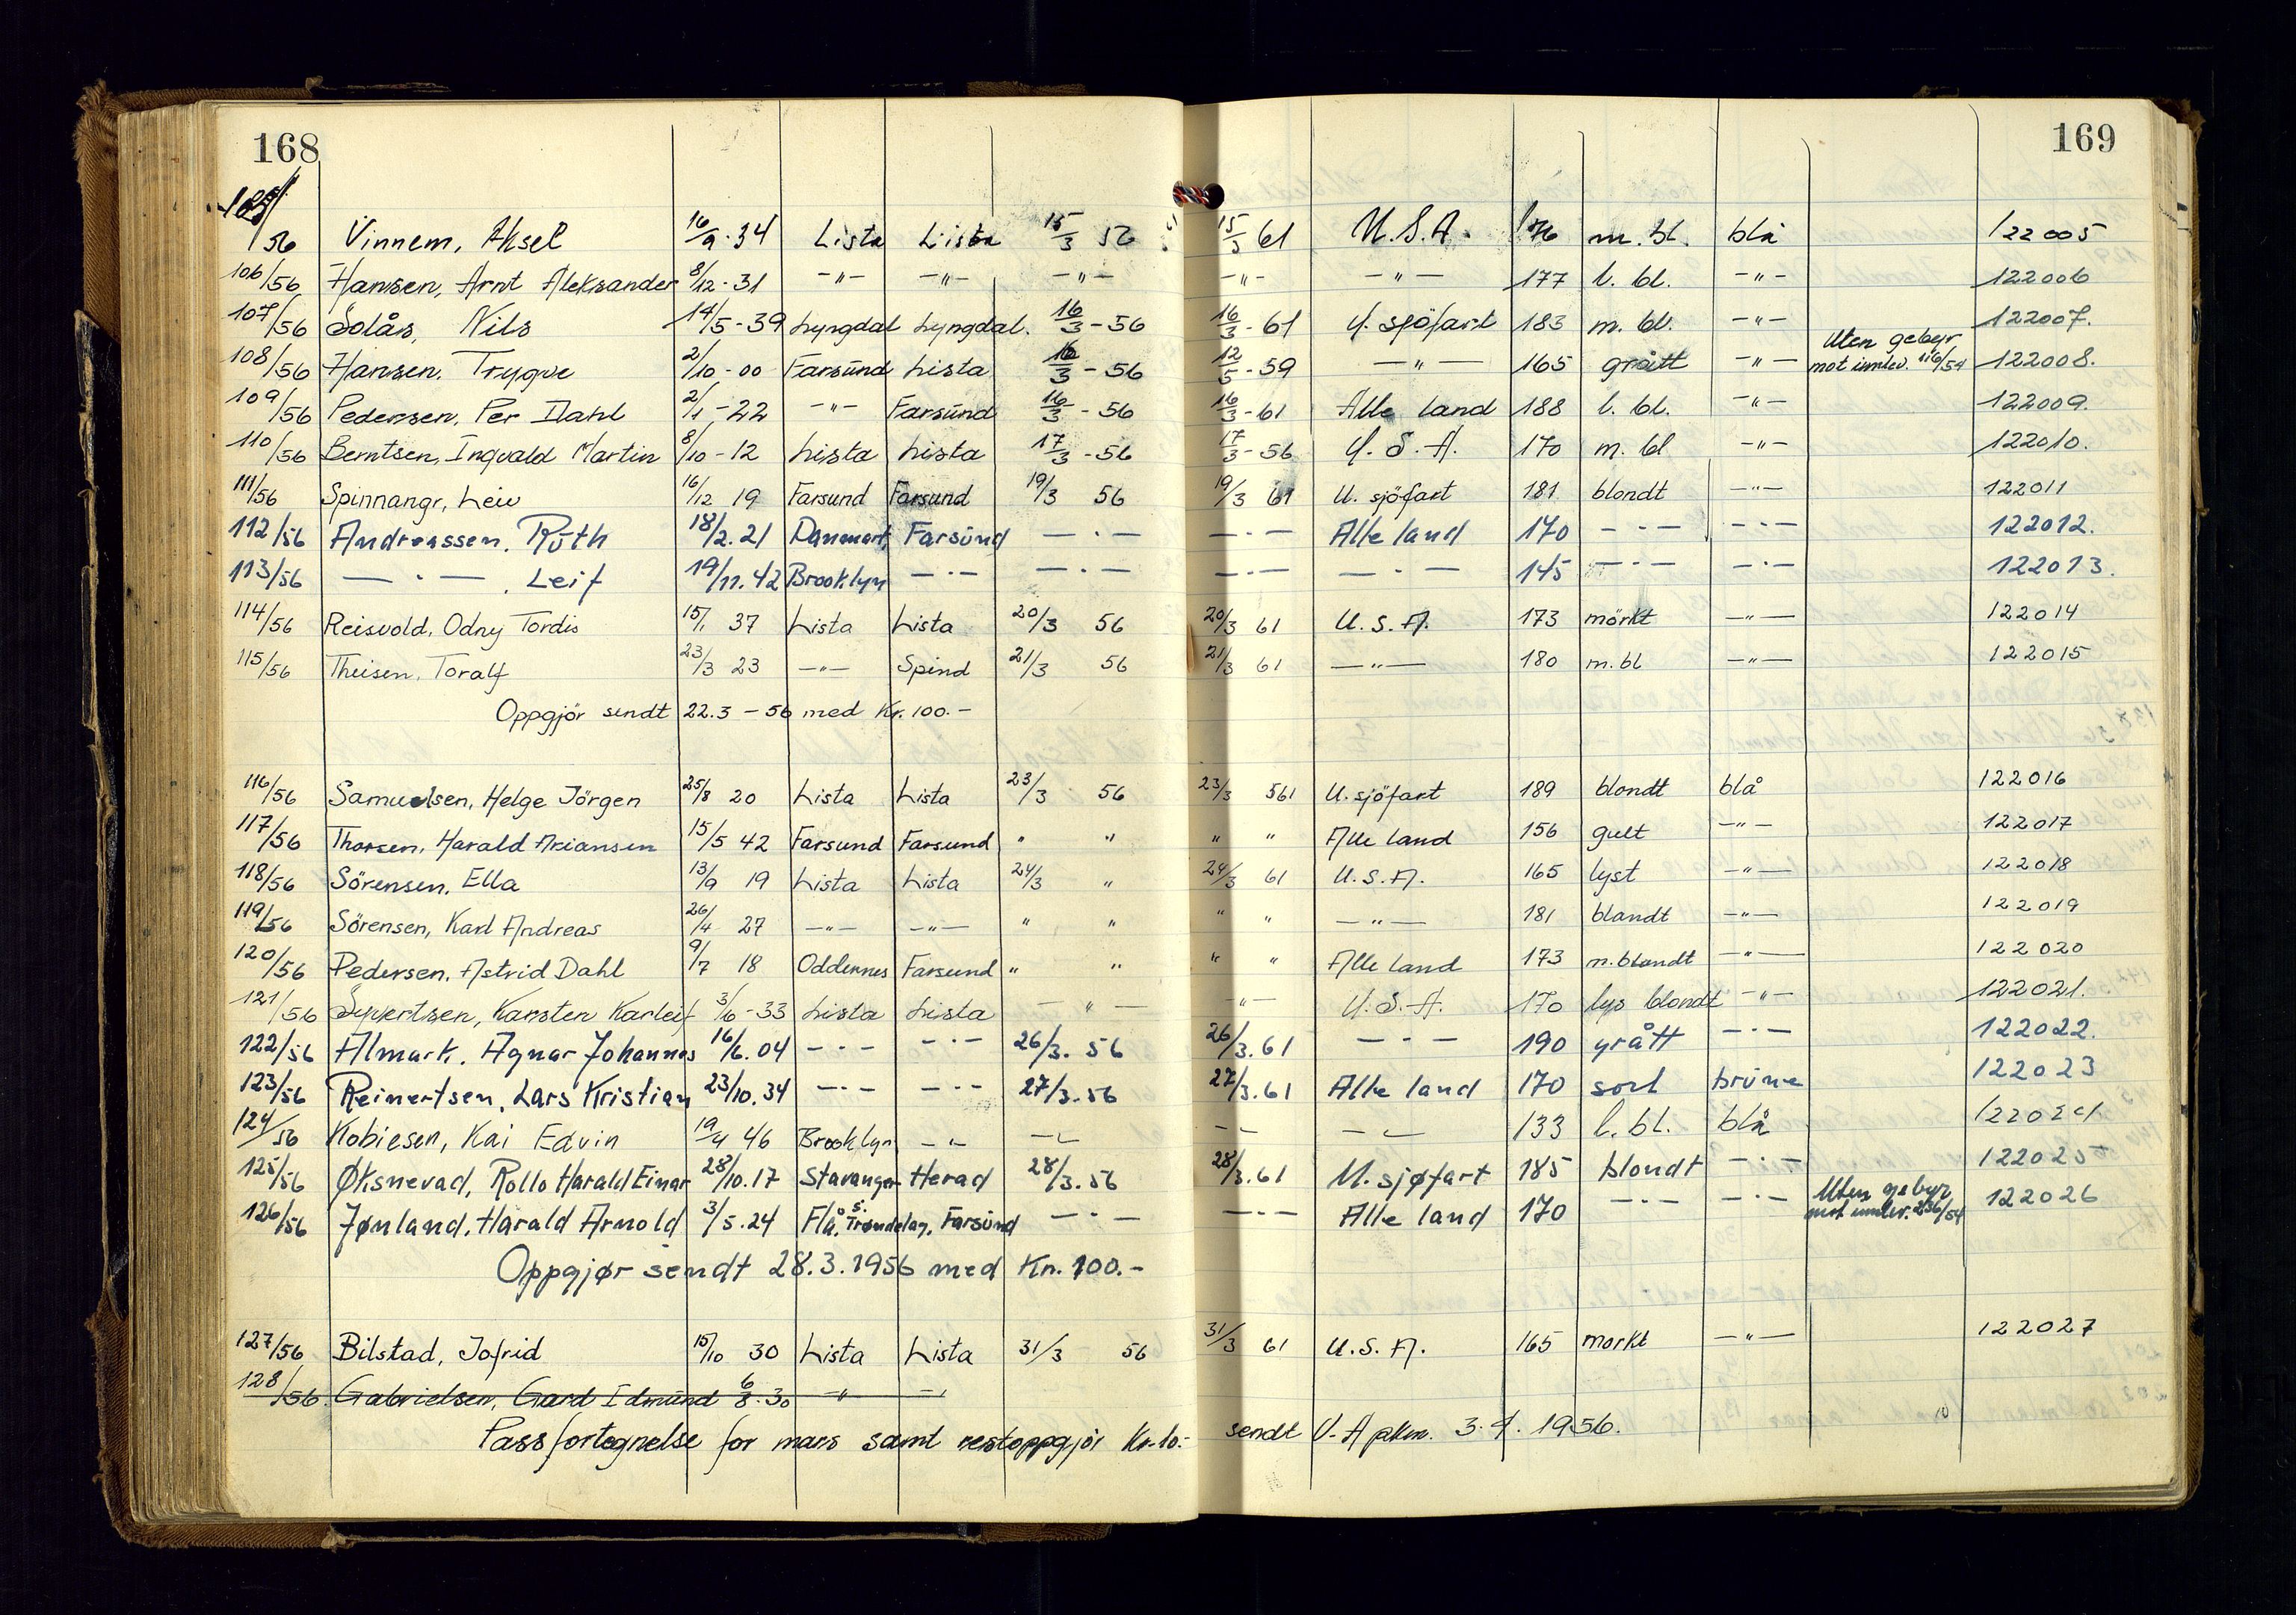 168
169
105/56 Vinnem, Aksel 16/9-34 Lista Lista 15/3 56 15/3 61 U.S.A. 176 m. bl. blå 122005
106/56 Hansen, Arnt Aleksander 8/12-31 -"- -"- -"- -"- -"- 177 l. bl. -"- 122006
107/56 Solås, Nils 14/5-39 Lyngdal Lyngdal. 16/3-56 16/3-61 U. sjöfart 183 m. bl. -"- 122007.
108/56 Hansen, Trygve 2/10-00 Farsund Lista 16/3-56 12/5-59 -"- 165 grått -"- Uten gebyr mot innlev. 116/54 122008.
109/56 Pedersen, Per Dahl 2/1-22 -"- Farsund 16/3-56 16/3-61 Alle land 188 l. bl. -"- 122009.
110/56 Berntsen, Ingvald Martin 8/10-12 Lista Lista 17/3-56 17/3-56 U.S.A. 170 m. bl -"- 122010.
111/56 Spinnangr, Leiv 16/12 19 Farsund Farsund 19/3 56 19/3 61 U. sjöfart 181 blondt -"- 122011
112/56 Andreassen, Ruth 18/2.21 Danmark Farsund -·- -·- Alle land 170 -·- -·- 122012.
113/56 -·- , Leif 19/11.42 Brooklyn -·- -·- -·- -·- 145 -·- -·- 122013.
114/56 Reisvold, Odny Tordis 15/1 37 Lista Lista 20/3 56 20/3 61 U.S.A. 173 mörkt -"- 122014
115/56 Theisen, Toralf 23/3 23 -"- Spind 21/3 56 21/3 61 -"- 180 m. bl -"- 122015
Oppgjör sendt 22.3-56 med Kr. 100.-
116/56 Samuelsen, Helge Jörgen 25/8 20 Lista Lista 23/3 56 23/3 561 U. sjöfart 189 blondt blå 122016
117/56 Thorsen, Harald Ariansen 15/5 42 Farsund Farsund " " " " Alle land 156 gult -"- 122017
118/56 Sörensen, Ella 13/9 19 Lista Lista 24/3 " 24/3 61 U.S.A. 165 lyst -"- 122018
119/56 Sörensen, Karl Andreas 26/4 27 -"- -"- " " " " -"- 181 blandt -"- 122019
120/56 Pedersen, Astrid Dahl 9/7 18 Oddernes Farsund " " " " Alle land 173 m. blondt -"- 122020
121/56 Syvertsen, Karsten Karleif 3/6-33 Lista Lista -"- -"- U.S.A. 170 lys blondt -"- 122021.
122/56 Almark, Agnar Johannes 16/6.04 -·- -·- 26/3. 56 26/3.61 -·- 190 grått -·- 122022.
123/56 Reinertsen, Lars Kristian 23/10.34 -·- -·- 27/3.56 27/3.61 Alle land 170 sort brune 122023
124/56 Kobiesen, Kai Edvin 19/4 46 Brooklyn -"- -"- -"- -"- 133 l. bl. blå 122024
125/56 Øksnevad, Rollo Harald Einar 28/10.17 Stavanger Herad 28/3.56 28/3.61 U. sjøfart 185 blondt -·- 122025
126/56 Jønland, Harald Arnold 3/5.24 Flå, S. Trøndelag. Farsund -·- -·- Alle land 170 -·- -·- Uten gebyr mot innlev. 236/54 122026
Oppgjør sendt 28.3.1956 med Kr. 100.-
127/56 Bilstad, Jofrid 15/10 30 Lista Lista 31/3 56 31/3 61 U.S.A. 165 morkt -"- 122027
128/56. Gabrielsen, Gard Edmund 6/8.30 -"- -"-
Passfortegnelse for mars samt restoppgjör Kr. 10.- sendt V-A pkm. 3.4.1956.